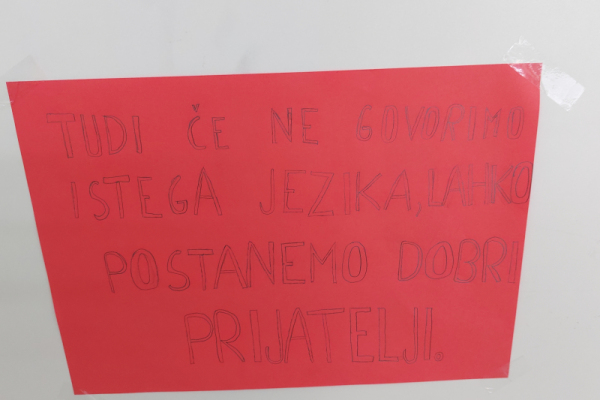 TUDI ČE NE GOVORIMO
ISTEGA JEZIKA, LAHKO
POSTANEMO DOBRI
PRIJATELJI.